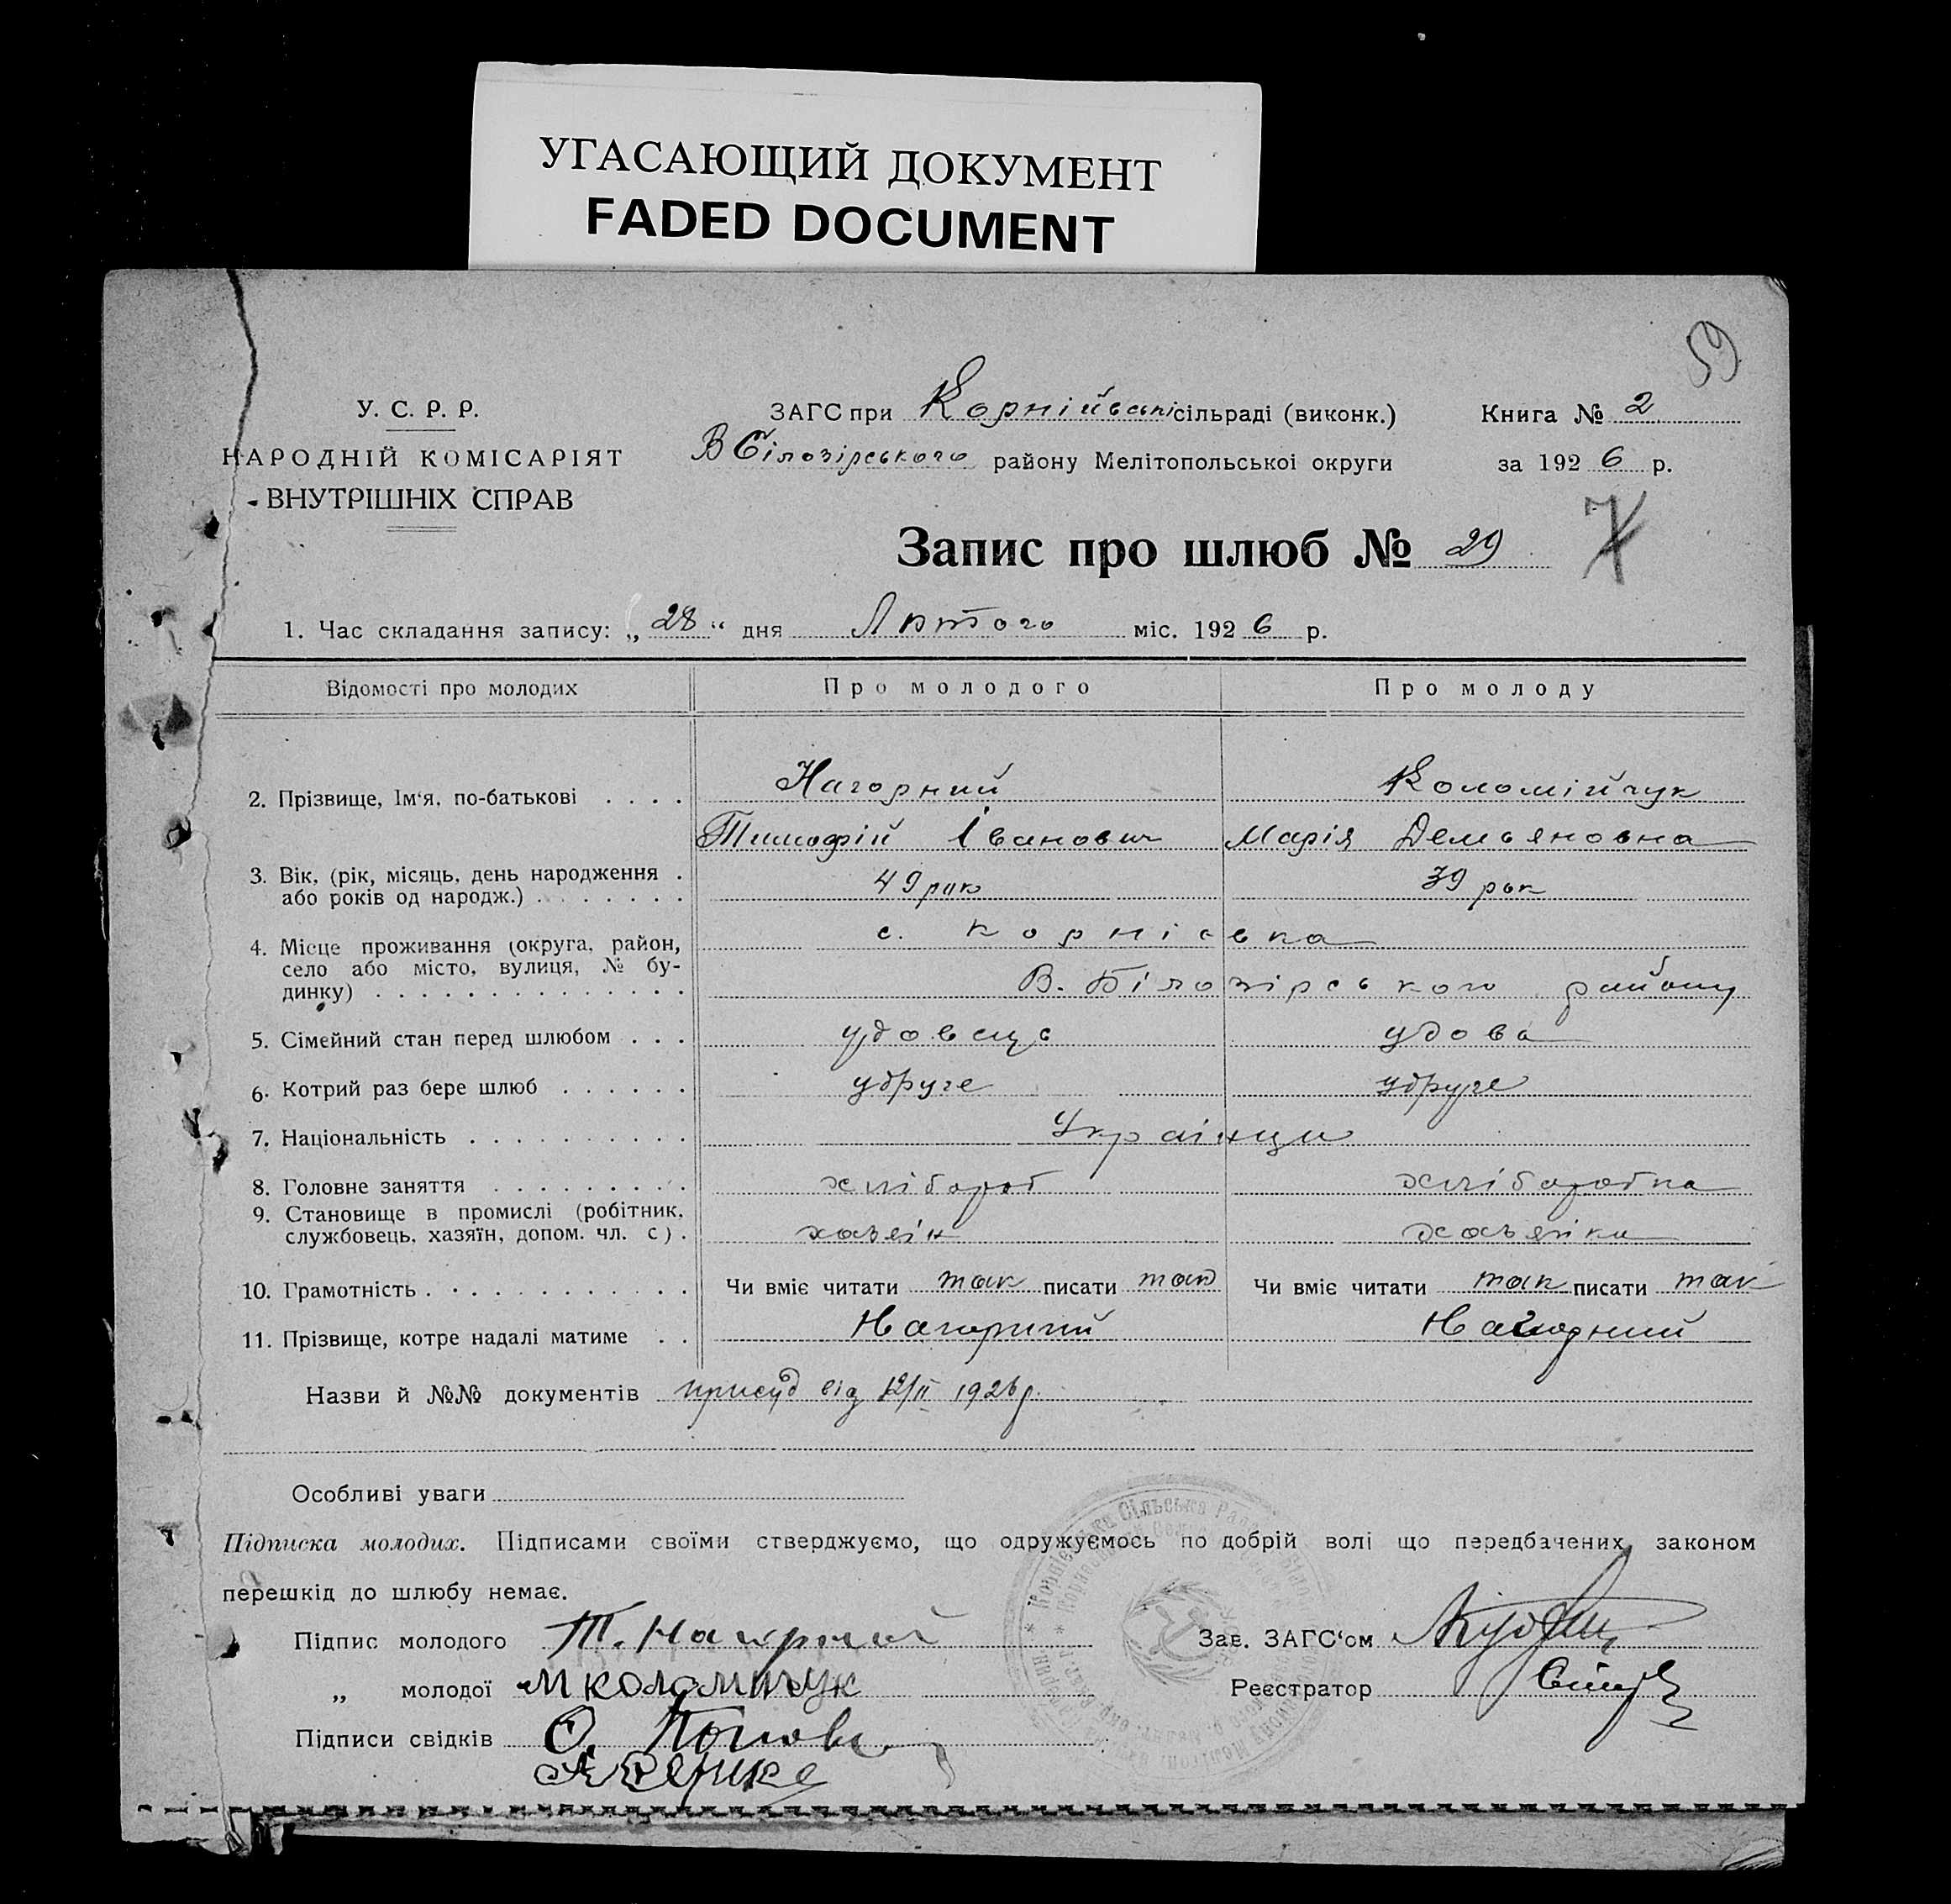 УГАСАЮЩИЙ ДОКУМЕНТ
FADED DOCUMENT
59
У. С. Р. Р.
НАРОДНІЙ КОМІСАРІЯТ
ВНУТРІШНІХ СПРАВ
ЗАГС при Корнійвські сільраді (виконк.)
В Білозірського району Мелітопольської округи
Книга № 2
за 1926 р.
Запис про шлюб № 29
7
1. Час складання запису: „28“ дня Лютого міс. 1926 р.
Відомості про молодих Про молодого Про молоду
2. Прізвище, Ім‘я, по-батькові . . . . Нагорний Коломійчук
Тимофій Іванович Марія Демьяновна
3. Вік, (рік, місяць, день народження . 49 рок 39 рок
або років од народж.) . . . . . . .
4. Місце проживання (округа, район, с. Корніевка
село або місто, вулиця, № бу- В. Білозірського району
динку) . . . . . . . . . . . . . .
5. Сімейний стан перед шлюбом . . . удовець удова
6. Котрий раз бере шлюб . . . . . . удруге удруге
7. Національність . . . . . . . . . . Українци
8. Головне заняття . . . . . . . . . хлібороб хліборобка
9. Становище в промислі (робітник,
службовець, хазяїн, допом. чл. с) . хозяїн хозяїка
10. Грамотність . . . . . . . . . . . Чи вміє читати так писати так Чи вміє читати так писати так
11. Прізвище, котре надалі матиме . . Нагорний Нагорний
Назви й №№ документів присуд від 12/II 1926 р.
Особливі уваги
Підписка молодих. Підписами своїми стверджуємо, що одружуємось по добрій волі що передбачених законом
перешкід до шлюбу немає.
Підпис молодого Т. Нагорний
Зав. ЗАГС‘ом
„ молодої М Коломичук
Реєстратор
Підписи свідків О.